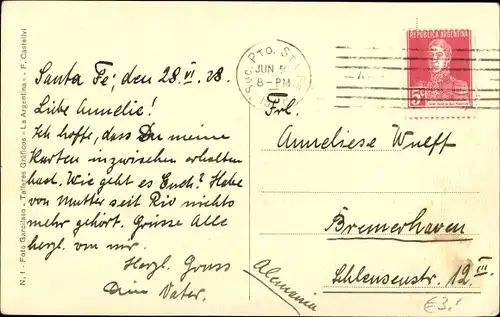 Santa Fé, den 28.VI.28.
Liebe Annelie!
Ich hoffe, dass Du meine
Karten inzwischen erhalten
hast. Wie geht es Euch? Habe
von Mutter seit Rio nichts
mehr gehört. Grüsse Alle
herzl. von mir.
Herzl. Gruss
Dein Vater.
N. 1 - Foto Garcilaso - Talleres Gráficos - La Argentina - F. Castellvi
SUC. PTO. STA. FE
JUN
8-PM
REPUBLICA ARGENTINA
5c
Frl.
Anneliese Wulff
Bremerhaven
Schleusenstr. 12 III
Alemania
€3,-